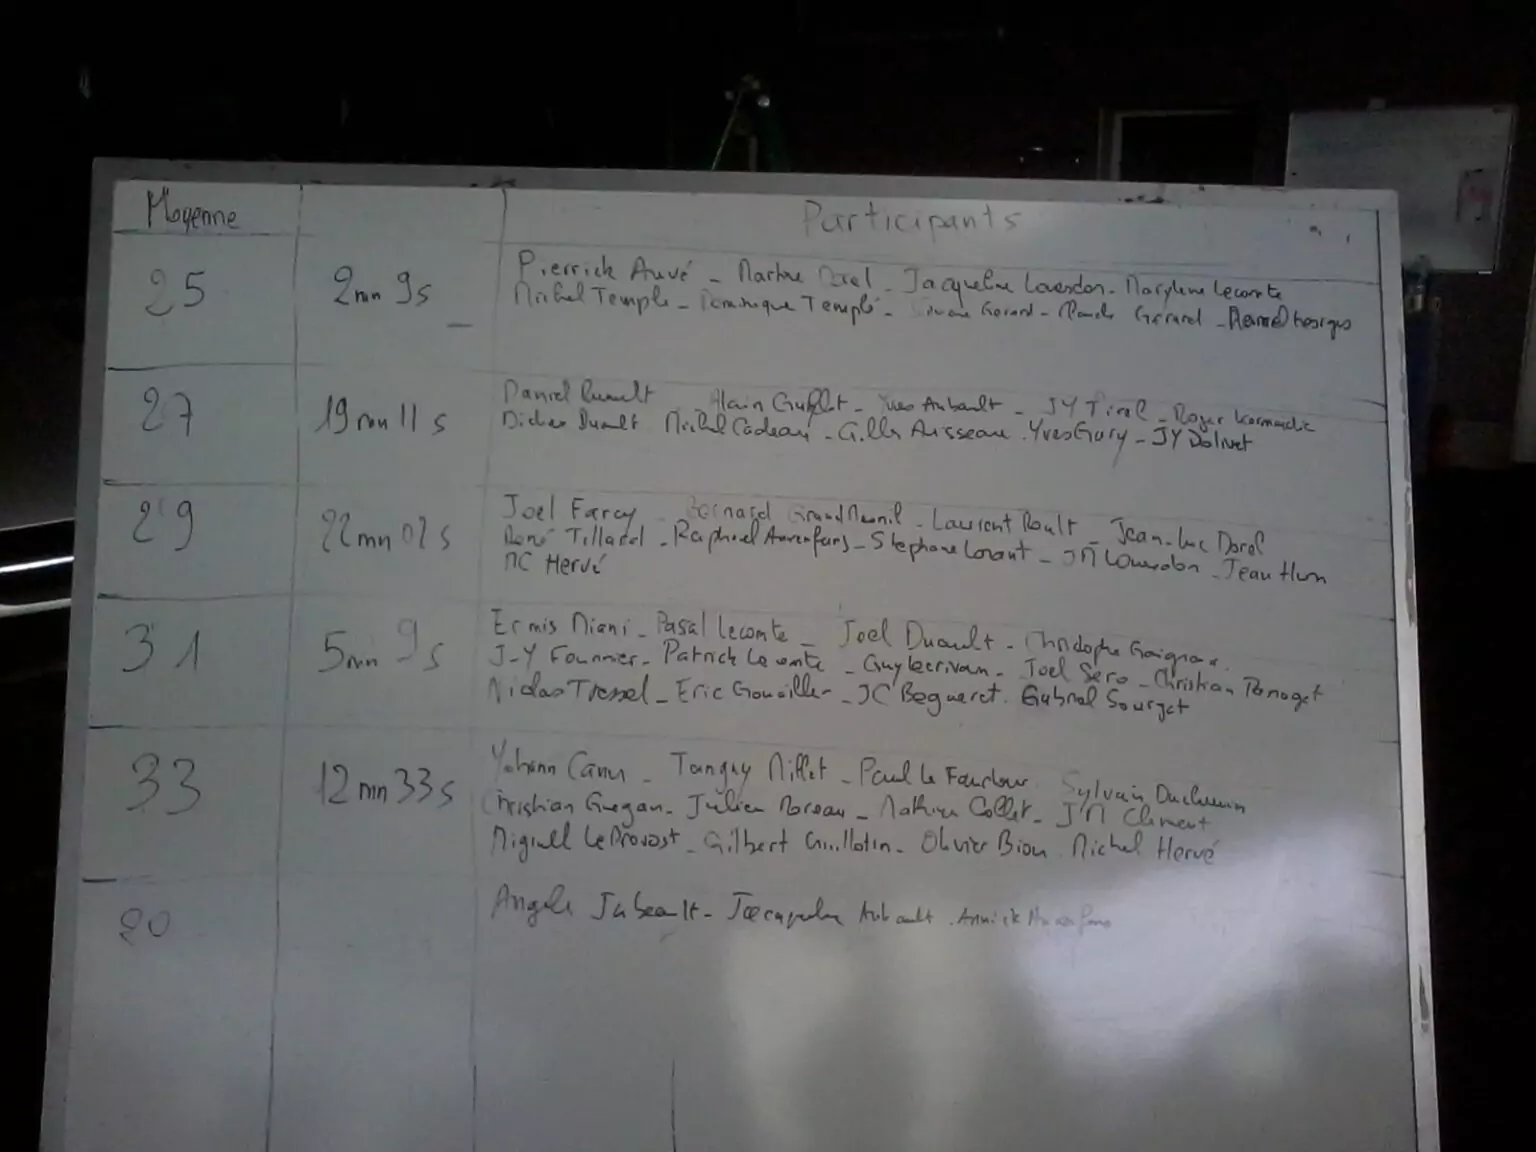 Moyenne Participants
25 2mn 9s Pierrick Auvé - Martine Dorel - Jacqueline Lourdon - Marylene Lecomte
Michel Temple - Dominique Templé - Gérard - Gérard - Georges
27 19mn 11s Daniel Ruault Alain - Yves Aubault - JY - Roger
Didier Duault Michel Cadeau - Gilles Aisseau - Yves Gury - JY Dolivet
29 22mn 02s Joel Farcy Bernard Grand Mesnil - Laurent Roult - Jean-Luc Dorel
René Tillard - Raphael - Stephane Lorant - JM Lourdon - Jean
MC Hervé
31 5mn 9s Ermis Miani - Pascal Lecomte - Joel Duault - Christophe
J-Y Fournier - Patrick Lecomte - Guy Lecrivain - Joel Sero - Christian
Nicolas Tressel - Eric Gouaille - JC Begueret - Gabriel Sourget
33 12mn 33s Yohann Canu - Tanguy Millet - Paul Le - Sylvain Duchemin
Christian Guegan - Julien Moreau - Mathieu Collet - JM Clement
Miguell Le Provost - Gilbert Guillotin - Olivier Biou Michel Hervé
20 Angele - Jacqueline Aubault - Annick